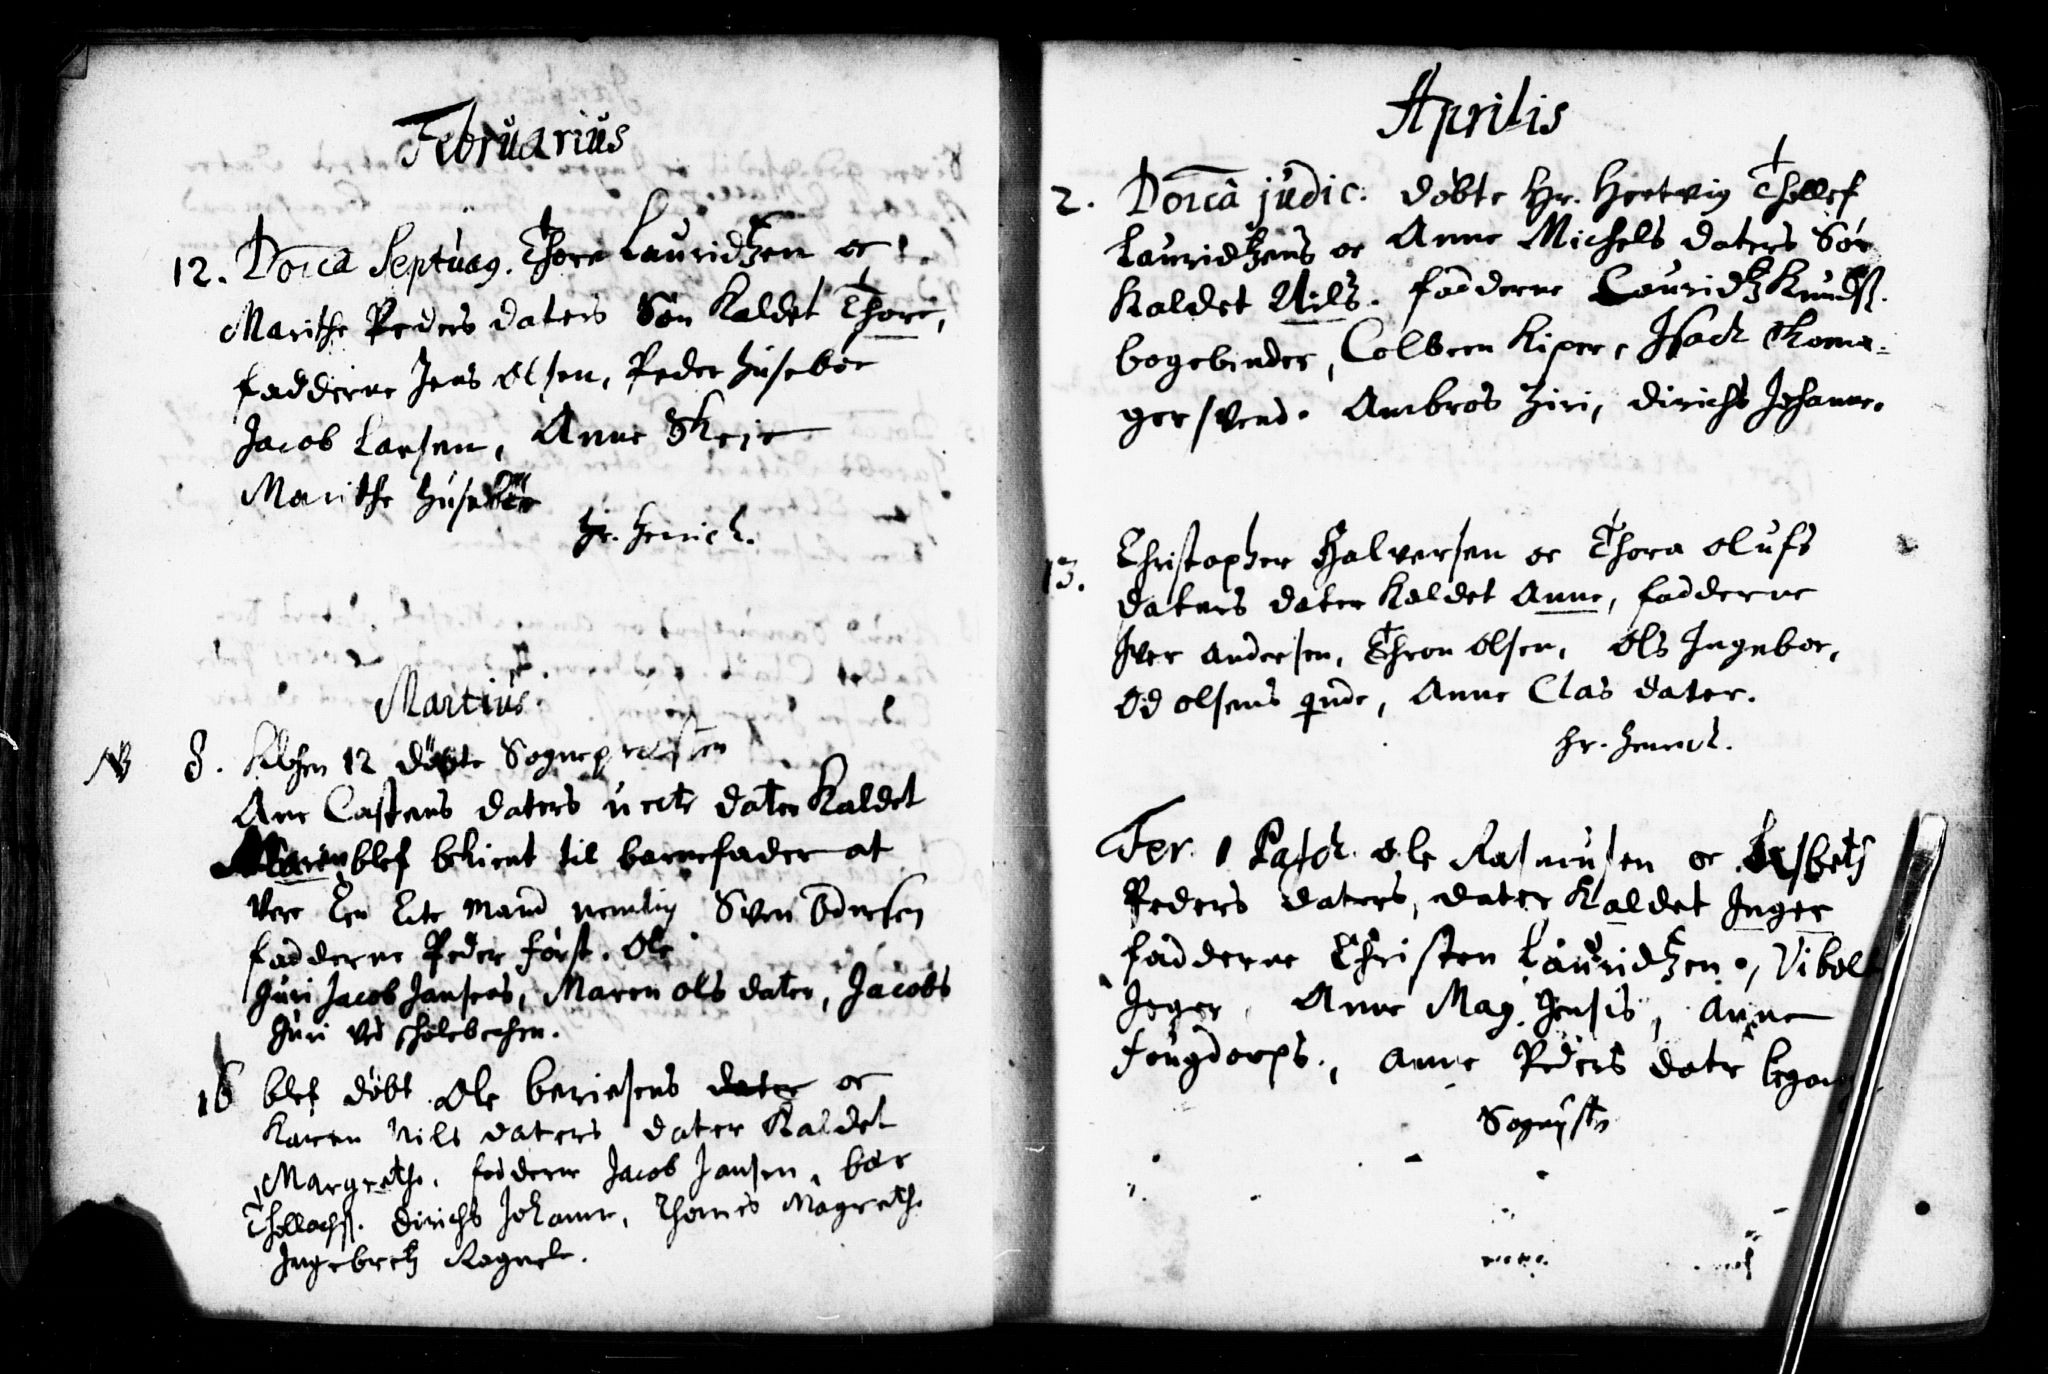 Februarius
12. Doica Septuag. Thore Lauridtzen oc
Marithe Peders daters Søn kaldet Thore,
fadderne Jens Olsen, Peder Husebøe
Jacob Larsen, Anne Skeie
Marithe Husebøe
Hr. Henrich.
Martius
NB 8. Klochen 12 døbte Sognepresten
Ane Castens daters uecte dater kaldet
Maren blef bekient til barnefader at
vere En Lite mand nemlig Sven
fadderne Peder først. Ole
Guri Jacob Jansens, Maren Ols dater, Jacobs
Guri ved
16 blef døbt Ole beriesens dater oc
Karen Nils daters dater kaldet
Margrethe. fadderne Jacob Jansen, boe
Dirichs Johanne, Thomes Magrethe
Ingebretz Ragnele.
Aprilis
2. Doica judic: døbte Hr. Hertvig Thollef
Lauridtzens oc Anne Michels daters Søn
kaldet Nils. fadderne Lauridtz Knuds.
bogebinder, Colbeen Kiper, Isach Skoma-
gersvend. Ambros Ziri, Dirichs Johanne.
13. Christopher Halversen oc Thora Olufs
daters dater kaldet Anne, fadderne
Iver Andersen, Thron Olsen, Ols Ingebor,
Od Olsens qnde, Anne Clas dater.
Hr. Henrich.
Fer. 1 Pasch. Ole Rasmusen oc Lisbeth
Peders daters, dater kaldet Inger
fadderne Christen Lauridtzen, Vibole
Jeger, Anne Mag. Jensis, Anne
Fougdorps., Anne Peders date